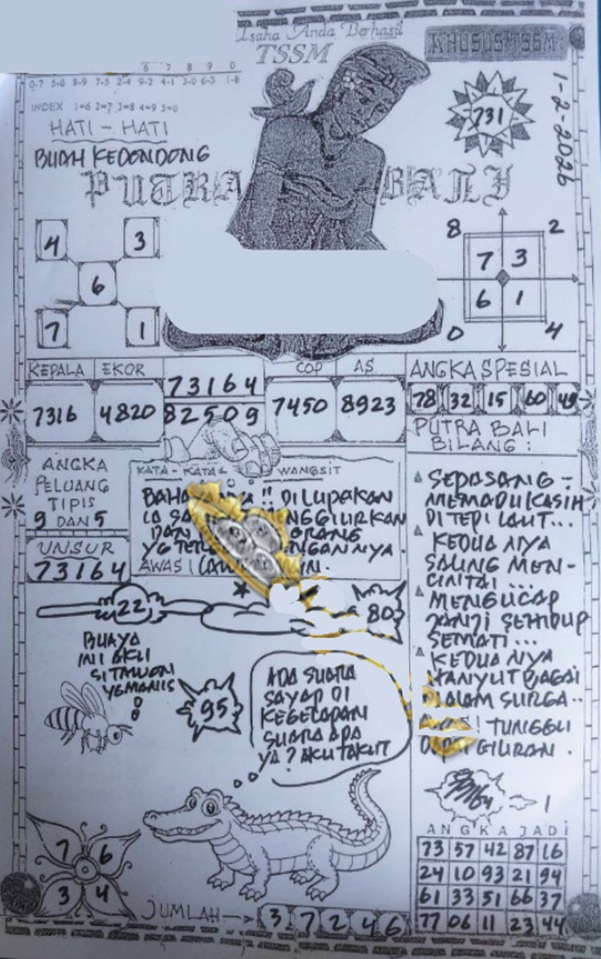 Usaha Anda Berhasil
TSSM
KHUSUS TSSM
1-2-2026
6 7 8 9 0
0-7 5-6 8-9 7-5 2-4 9-2 4-1 3-0 6-3 1-8
INDEX 1=6 2=7 3=8 4=9 5=0
HATI - HATI
BUAH KEDONDONG
731
PUTRA BALI
4 3
6
7 1
8 2
7 3
6 1
0 4
KEPALA EKOR
7316 4820
73164
82509
COP AS
7450 8923
ANGKA SPESIAL
78 32 15 60 49
ANGKA
PELUANG
TIPIS
9 DAN 5
UNSUR
73164
KATA - KATA WANGSIT
!! DILUPAKAN
DAN
AWAS!
22
80
BUAYA
INI AKU
SI
YGMANIS
!!
95
ADA SUARA
SAYAP DI
KEGELAPAN
SUARA APA
YA? AKU TAKUT
PUTRA BALI
BILANG :
SEPASANG -
MEMADU KASIH
DI TEPI LAUT...
KEDUA NYA
SALING MEN-
CINTAI ...
MENGUCAP
JANJI SEHIDUP
SEMATI ...
KEDUA NYA
HANYUT BAGAI
DALAM SURGA..
AWAS! TUNGGU
DAPAT GILIRAN.
1
ANGKA JADI
73 57 42 87 16
24 10 93 21 94
61 33 51 66 37
77 06 11 23 44
7 6
3 4
JUMLAH → 3 7 2 4 6